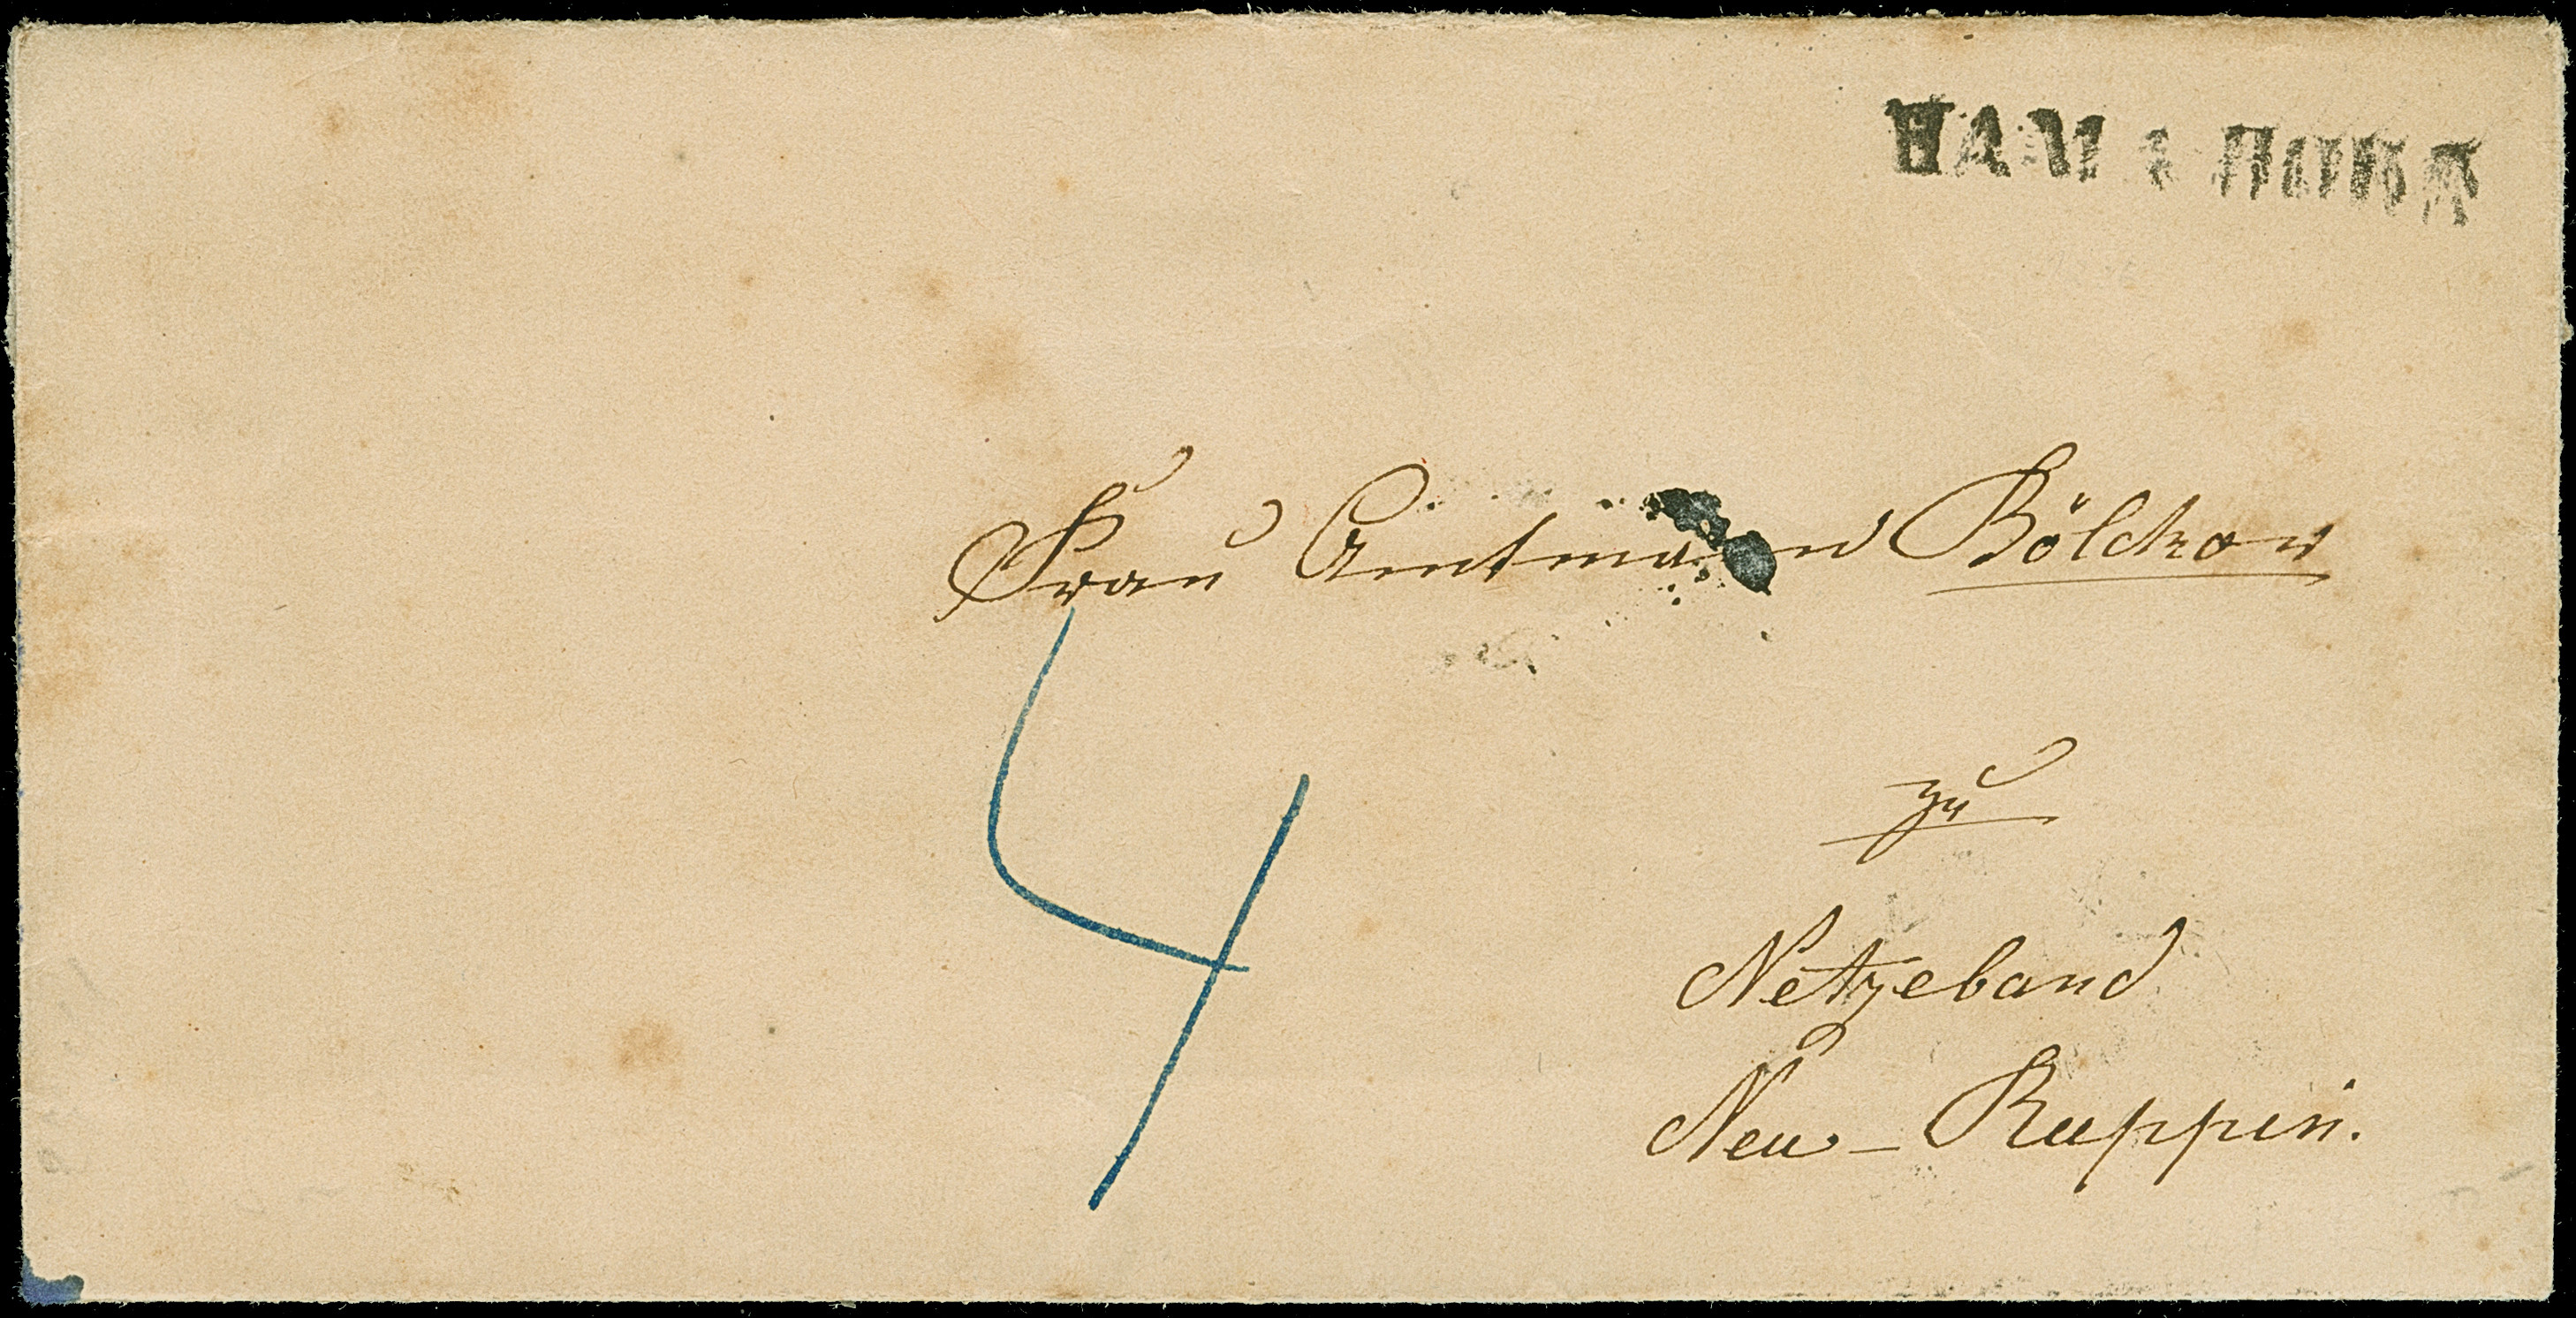 HAMBURG
Frau Amtmann Bölckow
4
zu
Netzeband
Neu-Ruppin.